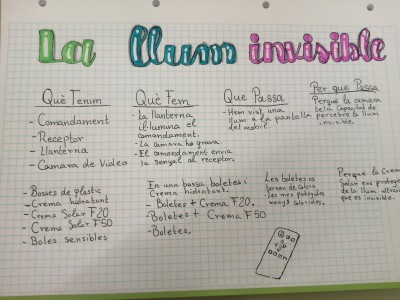 La llum invisible
Què Tenim
- Comandament
- Receptor
- Llanterna
- Camara de Video
- Bosses de plastic
- Crema hidratant
- Crema Solar F20
- Crema Solar F50
- Boles sensibles
Què Fem
- La llanterna
il·lumina el
comandament.
- La camara ho grava.
- El comandament envia
la senyal al receptor.
En una bossa boletes i
Crema hidratant.
- Boletes + Crema F20.
- Boletes + Crema F50
- Boletes.
Que Passa
- Hem vist una
llum a la pantalla
del mobil
Les boletes es
tornen de colors
les mes protegides
menys colorides.
Per que Passa
Perque la camara
es capaç de
percebre la llum
invisible.
Perque la Crema
Solar ens protegeix
de la llum ultraviol
que es invisible.